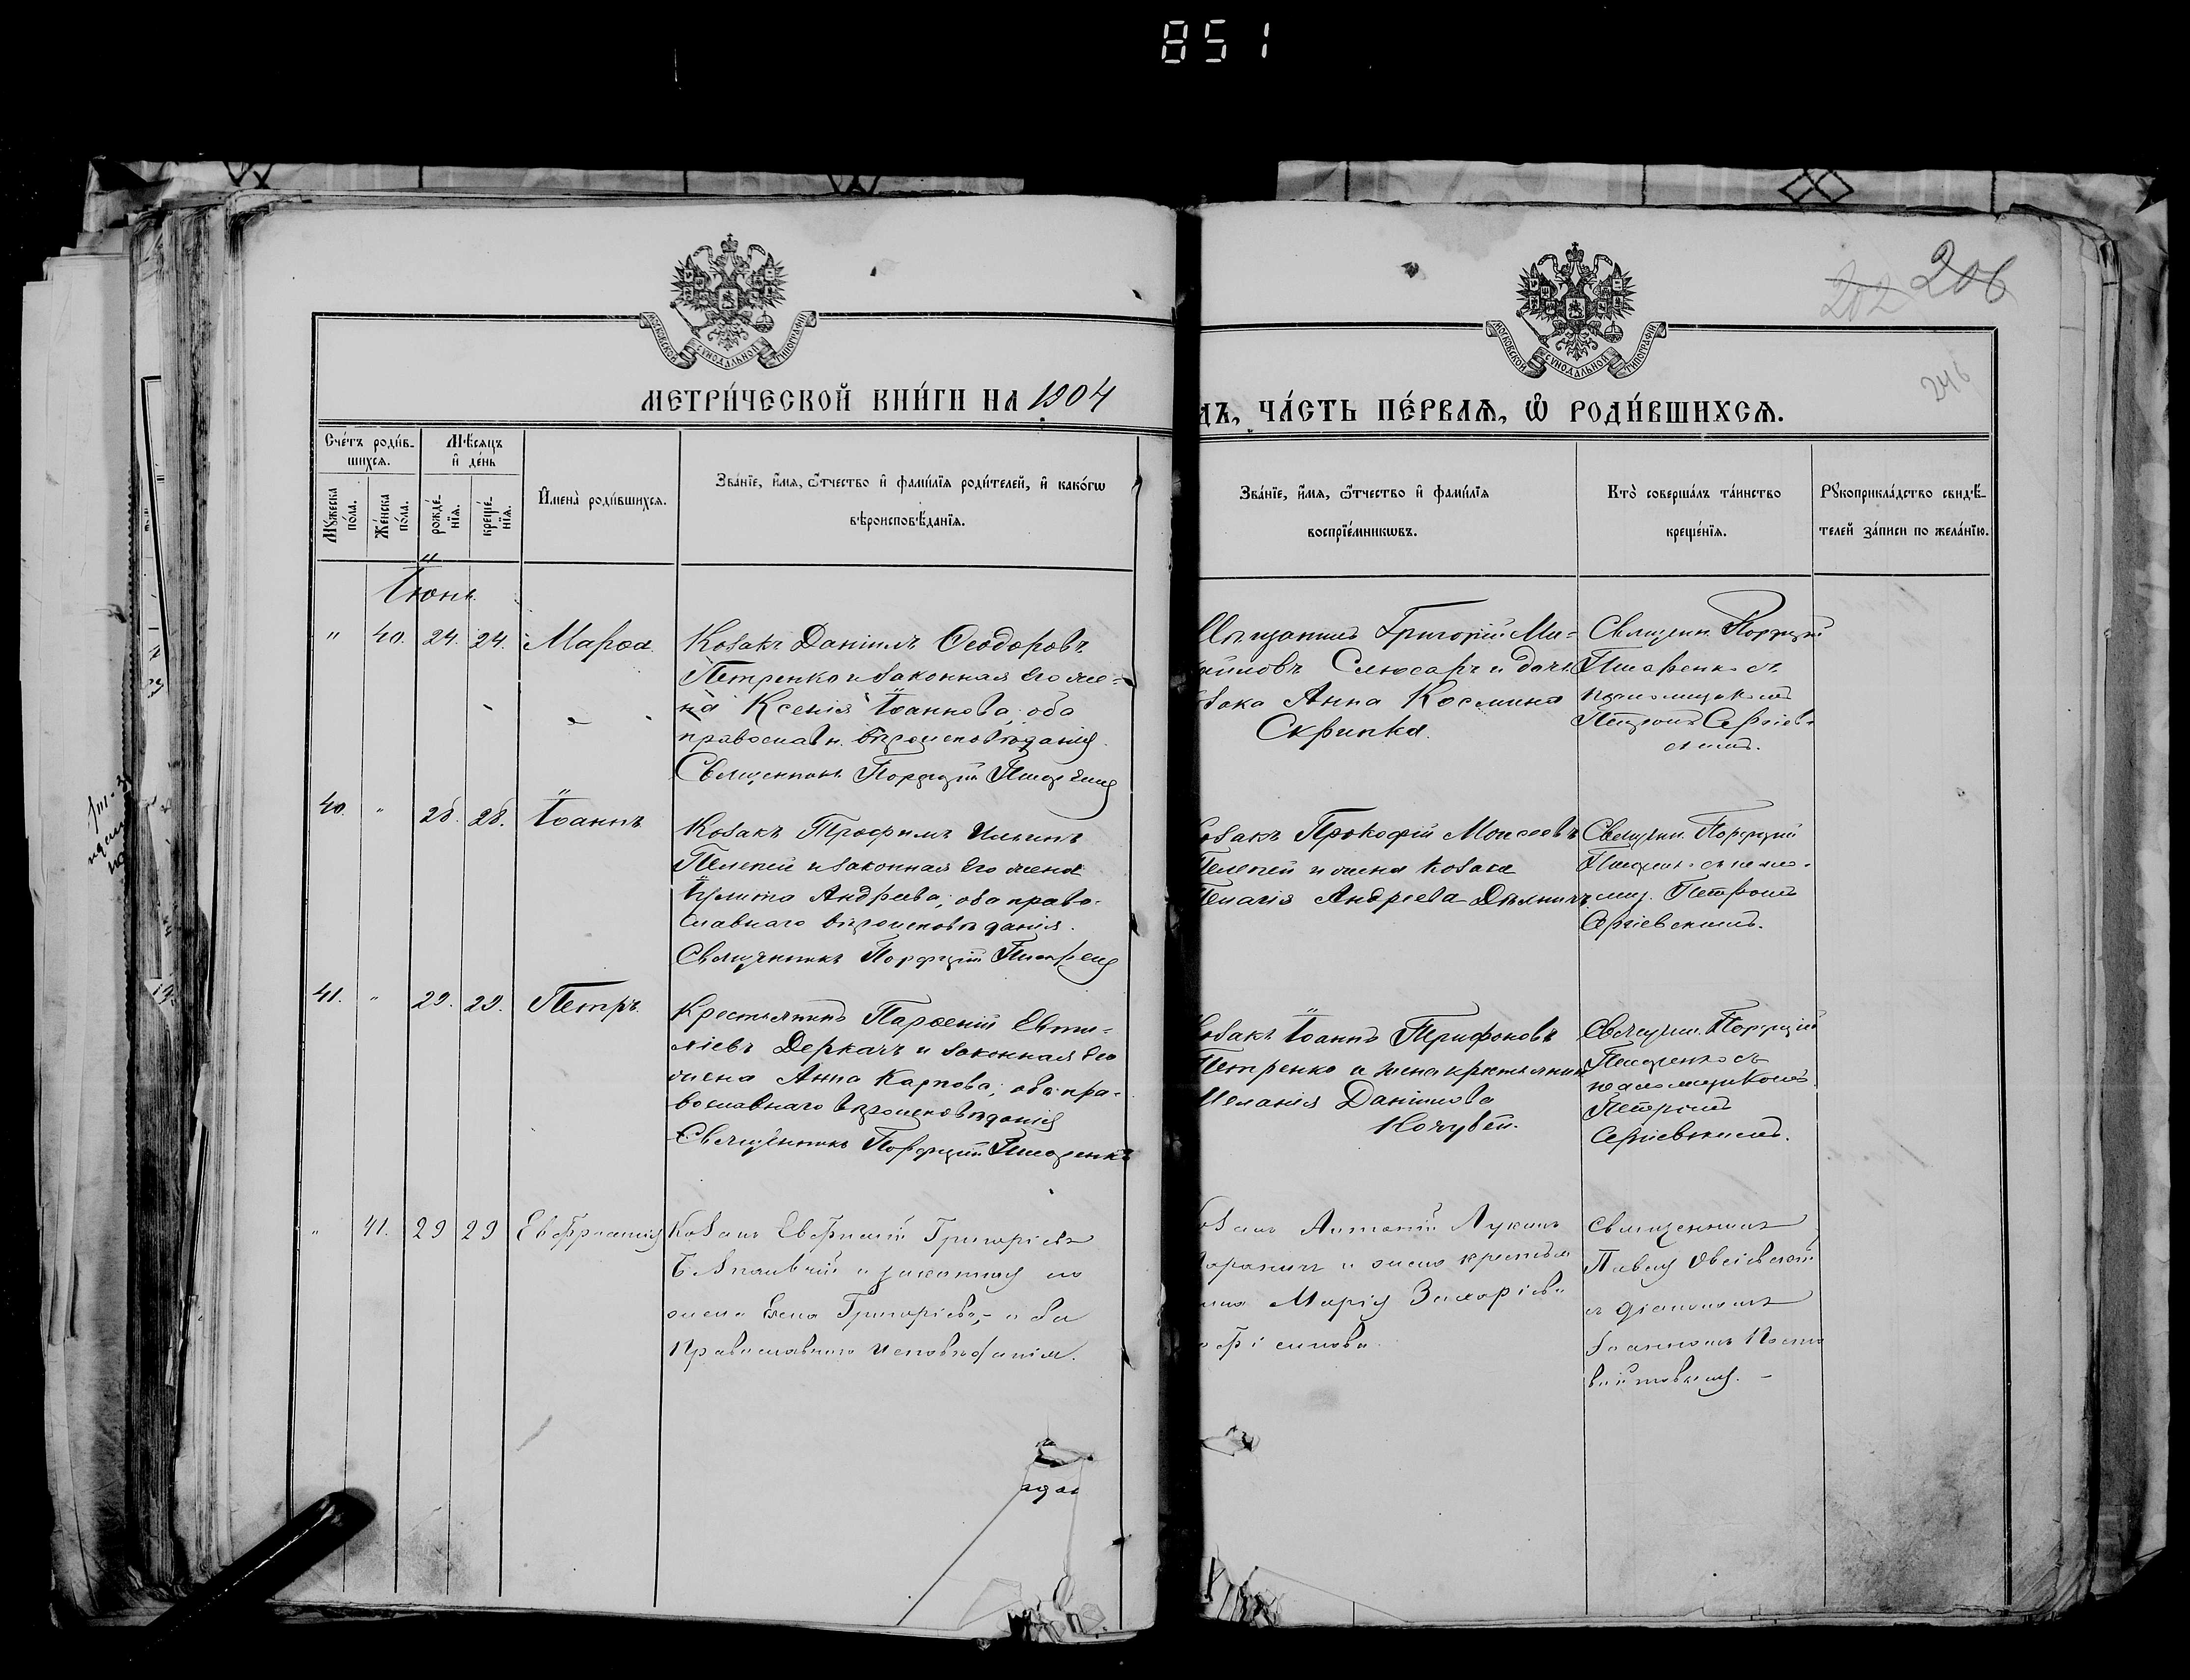 851
202 206
246
МОСКОВСКОЙ СѴНОДАЛЬНОЙ ТИПОГРАФІИ
МОСКОВСКОЙ СѴНОДАЛЬНОЙ ТИПОГРАФІИ
МЕТРИ́ЧЕСКОЙ КНИ́ГИ НА 1904
ДЪ, ЧА́СТЬ ПЕ́РВАѦ, Ѽ РОДИ́ВШИХСѦ.
Сче́тъ роди́в-
шихсѧ.
Мѣ́сѧцъ
и҆ де́нь
Мꙋ́жеска
по́ла.
Же́нска
по́ла.
рожде́-
нїѧ.
креще́-
нїѧ.
И҆мена̀ роди́вшихсѧ.
Зва́нїе, и҆́мѧ, ѻ҆́тчество и҆ фами́лїѧ роди́телей, и҆ како́гѡ
вѣроисповѣ́данїѧ.
Зва́нїе, и҆́мѧ, ѻ҆́тчество и҆ фами́лїѧ
воспрїе́мникѡвъ.
Кто̀ соверша́лъ та́инство
креще́нїѧ.
Рꙋкоприкла́дство свидѣ́-
телей за́писи по жела́нїю.
Іюнь.
" 40. 24. 24. Марѳа.
Козакъ Даніилъ Ѳеодоровъ
Петренко и законная его же-
на Ксенія Іоаннова; оба
православн. вѣроисповѣданія.
Священникъ Порфирій
Григорій Ми-
айловъ Слюсарь и дочь
зака Анна Космина
Скрипка.
Священн. Порфирій
Писаренко съ
псаломщикомъ
Петромъ Сергіев-
скимъ.
40. " 28. 28. Іоаннъ.
Козакъ Трофимъ Ильинъ
Пелепей и законная его жена
Іулита Андреева; оба право-
славнаго вѣроисповѣданія.
Священникъ Порфирій
озакъ Прокофій Моисеевъ
Пелепей и жена козака
Андреева
Священн. Порфирій
съ псало-
мщ. Петромъ
Сергіевскимъ.
41. " 29. 29. Петръ.
Крестьянинъ Парѳеній Евти-
міевъ Деркачъ и законная его
жена Анна Карпова; оба пра-
вославнаго вѣроисповѣданія
Священникъ Порфирій Писаренко
озакъ Іоаннъ Трифоновъ
Петренко и жена крестьянина
Меланія Даніилова
Кочубей.
Священн. Порфирій
Писаренко съ
псаломщикомъ
Петромъ
Сергіевскимъ.
" 41. 29 29 Евфросинія
Козакъ Евфимій Григоріевъ
и законная его
жена Елена Григоріева, оба
Православнаго исповѣданія.
озакъ Антоній Лукинъ
и жена крестья
нина Марія Захаріева
Священникъ
Павелъ
съ діакономъ
Іоанномъ